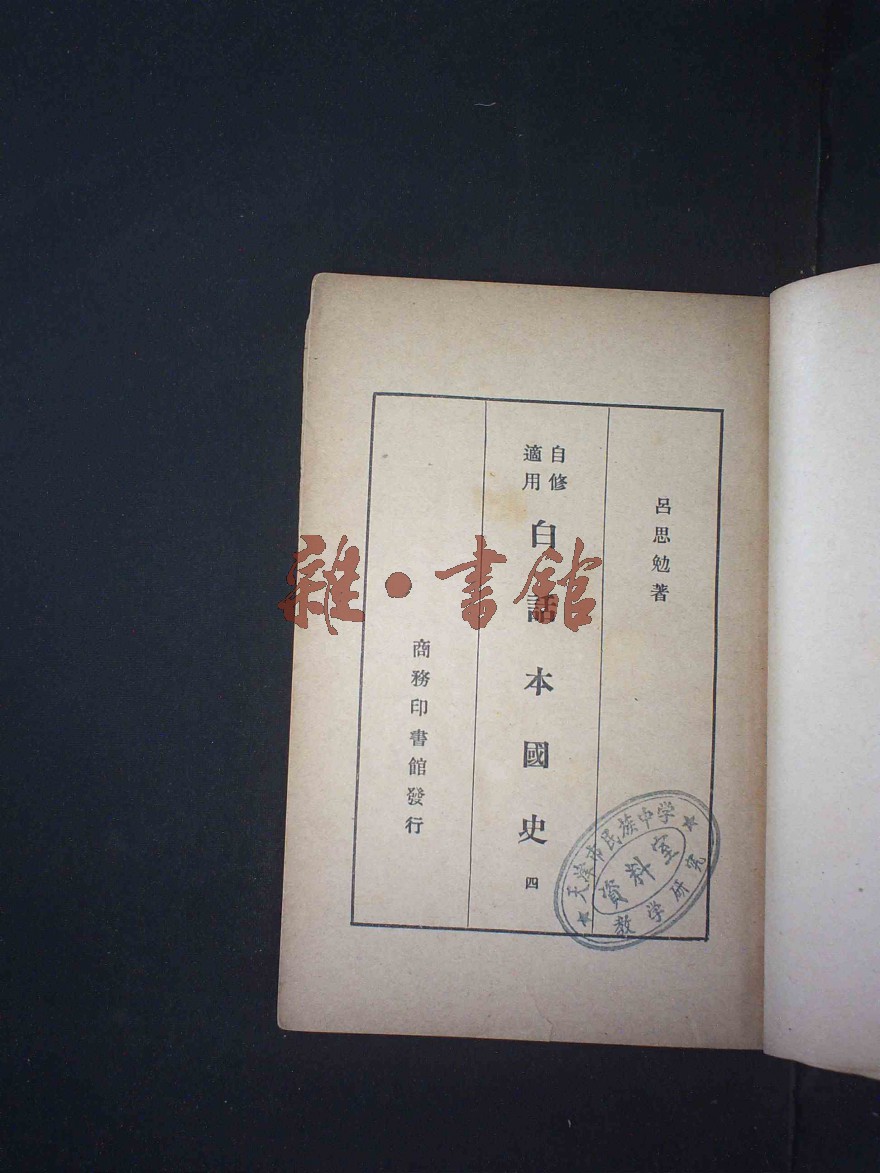 呂思勉著
自修
適用
白話本國史
四
商務印書館發行
雜·書館
天津市民族中学
資料室
教学研究